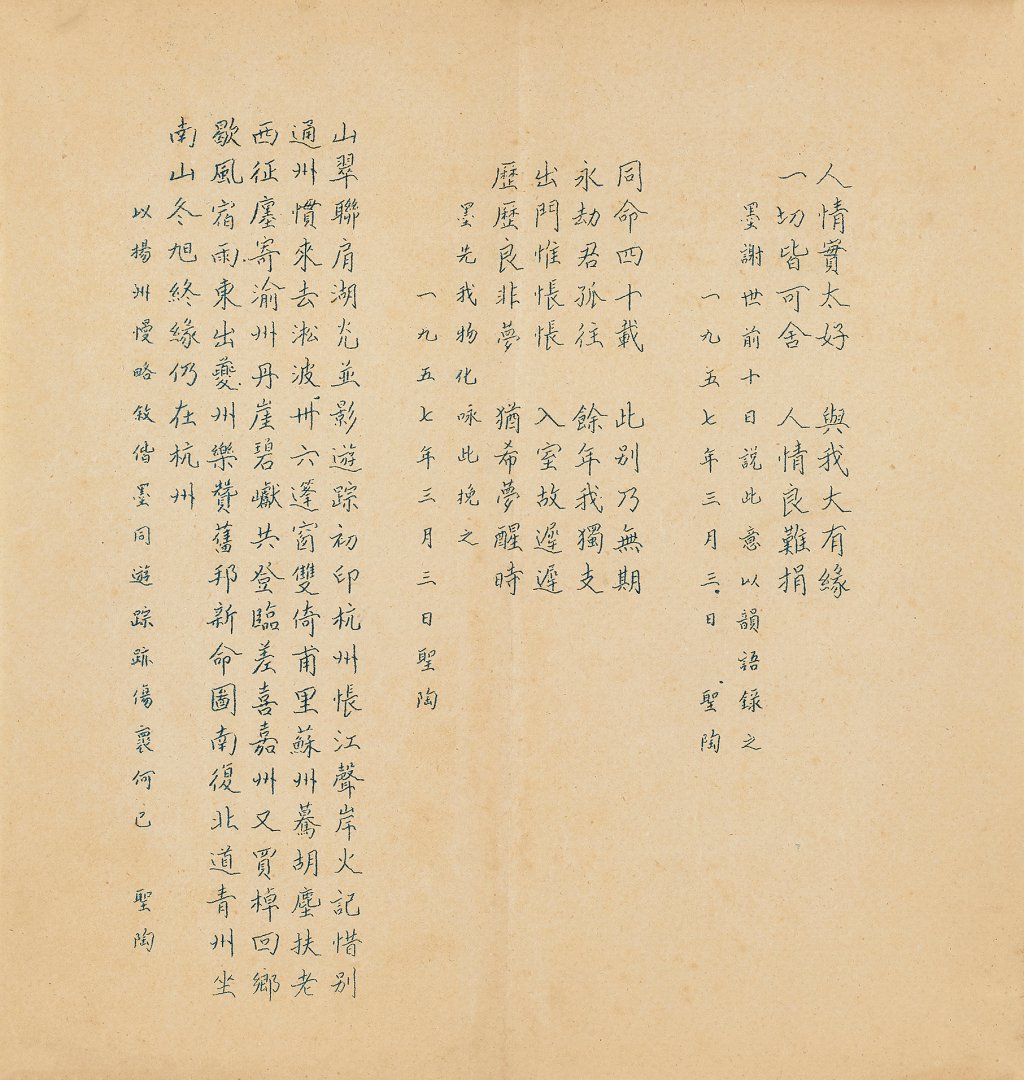 人情實太好　與我大有緣
一切皆可舍　人情良難捐
墨謝世前十日說此意以韻語錄之
一九五七年三月三日　聖陶
同命四十載　此別乃無期
永劫君孤往　餘年我獨支
出門惟悵悵　入室故遲遲
歷歷良非夢　猶希夢醒時
墨先我物化咏此挽之
一九五七年三月三日聖陶
山翠聯肩湖光並影遊踪初印杭州悵江聲岸火記惜別
通州慣來去淞波卅六篷窗雙倚甫里蘇州驀胡塵扶老
西征廛寄渝州丹崖碧巘共登臨差喜嘉州又買棹回鄉
歇風宿雨東出夔州樂贊舊邦新命圖南復北道青州坐
南山冬旭終緣仍在杭州
以揚州慢略敘偕墨同遊踪跡傷褱何已　聖陶